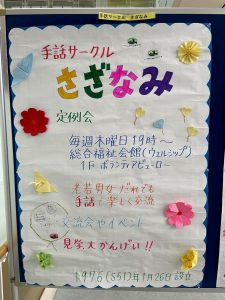 手話サークル さざなみ
手話サークル
さざなみ
定例会
毎週木曜日19時～
総合福祉会館(ウェルシップ)
1F ボランティアビューロー
老若男女だれでも
手話で楽しく交流
交流会やイベント
見学大かんげい!!
1976(S51)年1月26日設立